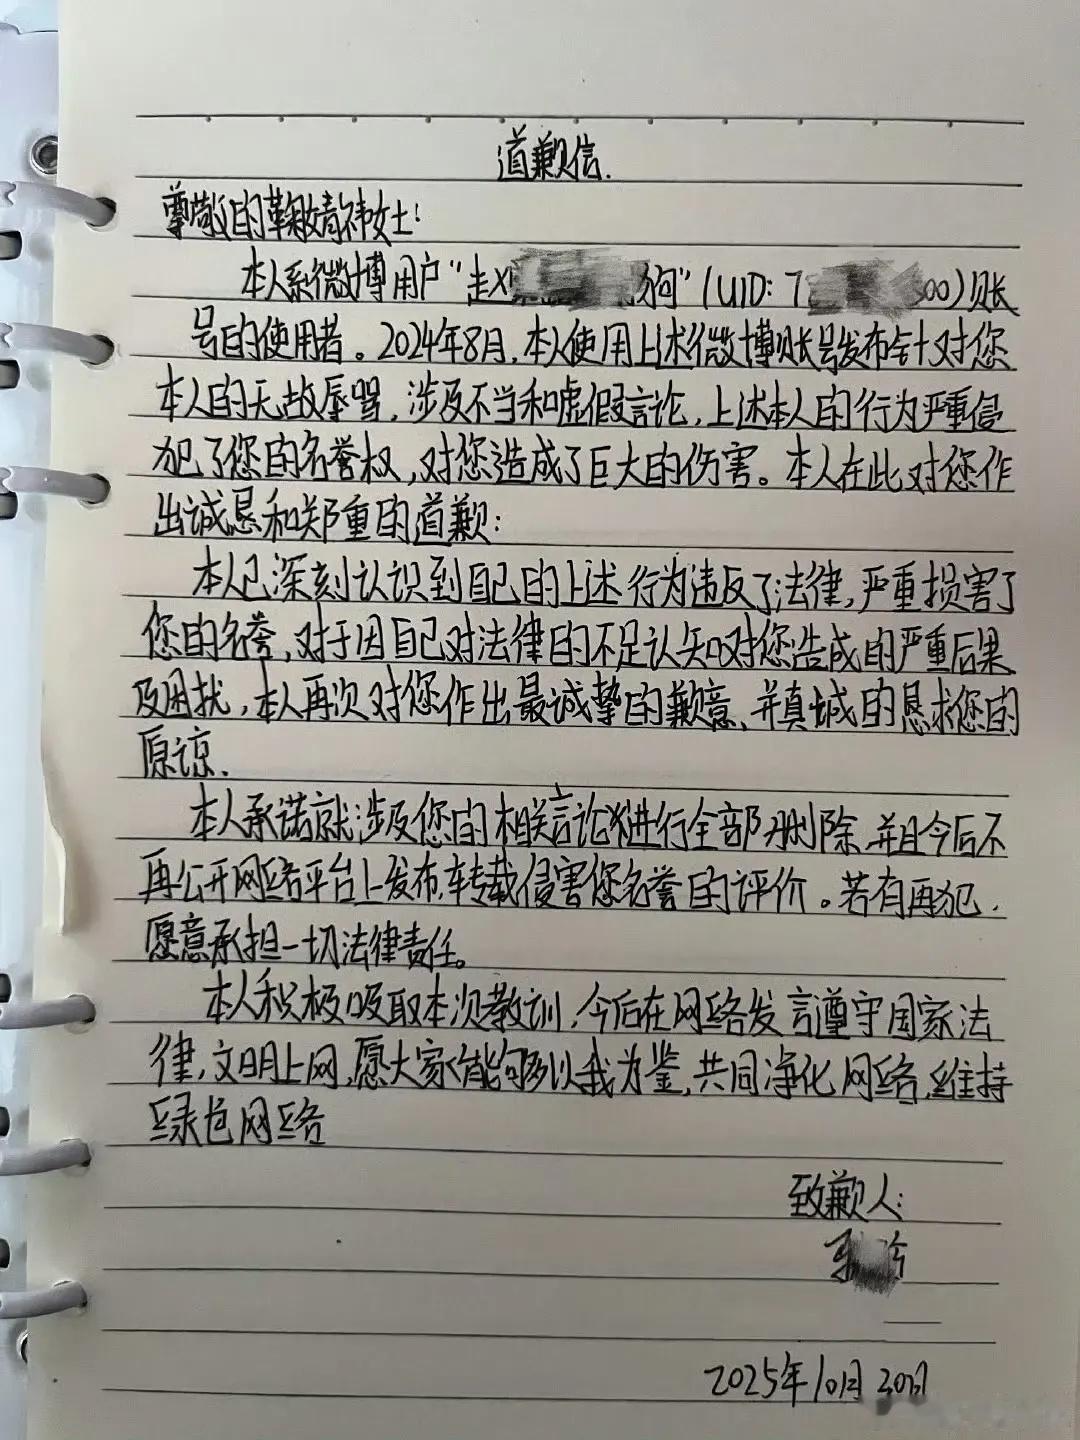 道歉信.
尊敬的鞠婧祎女士:
本人系微博用户“走 狗”(UID:7 300)账
号的使用者。2024年8月,本人使用上述微博账号发布针对您
本人的无故辱骂,涉及不当和虚假言论,上述本人的行为严重侵
犯了您的名誉权,对您造成了巨大的伤害。本人在此对您作
出诚恳和郑重的道歉:
本人已深刻认识到自己的上述行为违反了法律,严重损害了
您的名誉,对于因自己对法律的不足认知对您造成的严重后果
及困扰,本人再次对您作出最诚挚的歉意、并真诚的恳求您的
原谅.
本人承诺就涉及您的相关言论进行全部删除,并且今后不
再公开网络平台上发布,转载侵害您名誉的评价。若有再犯.
愿意承担一切法律责任。
本人积极吸取本次教训,今后在网络发言遵守国家法
律,文明上网,愿大家能够以我为鉴,共同净化网络,维持
绿色网络
致歉人:
2025年10月30日